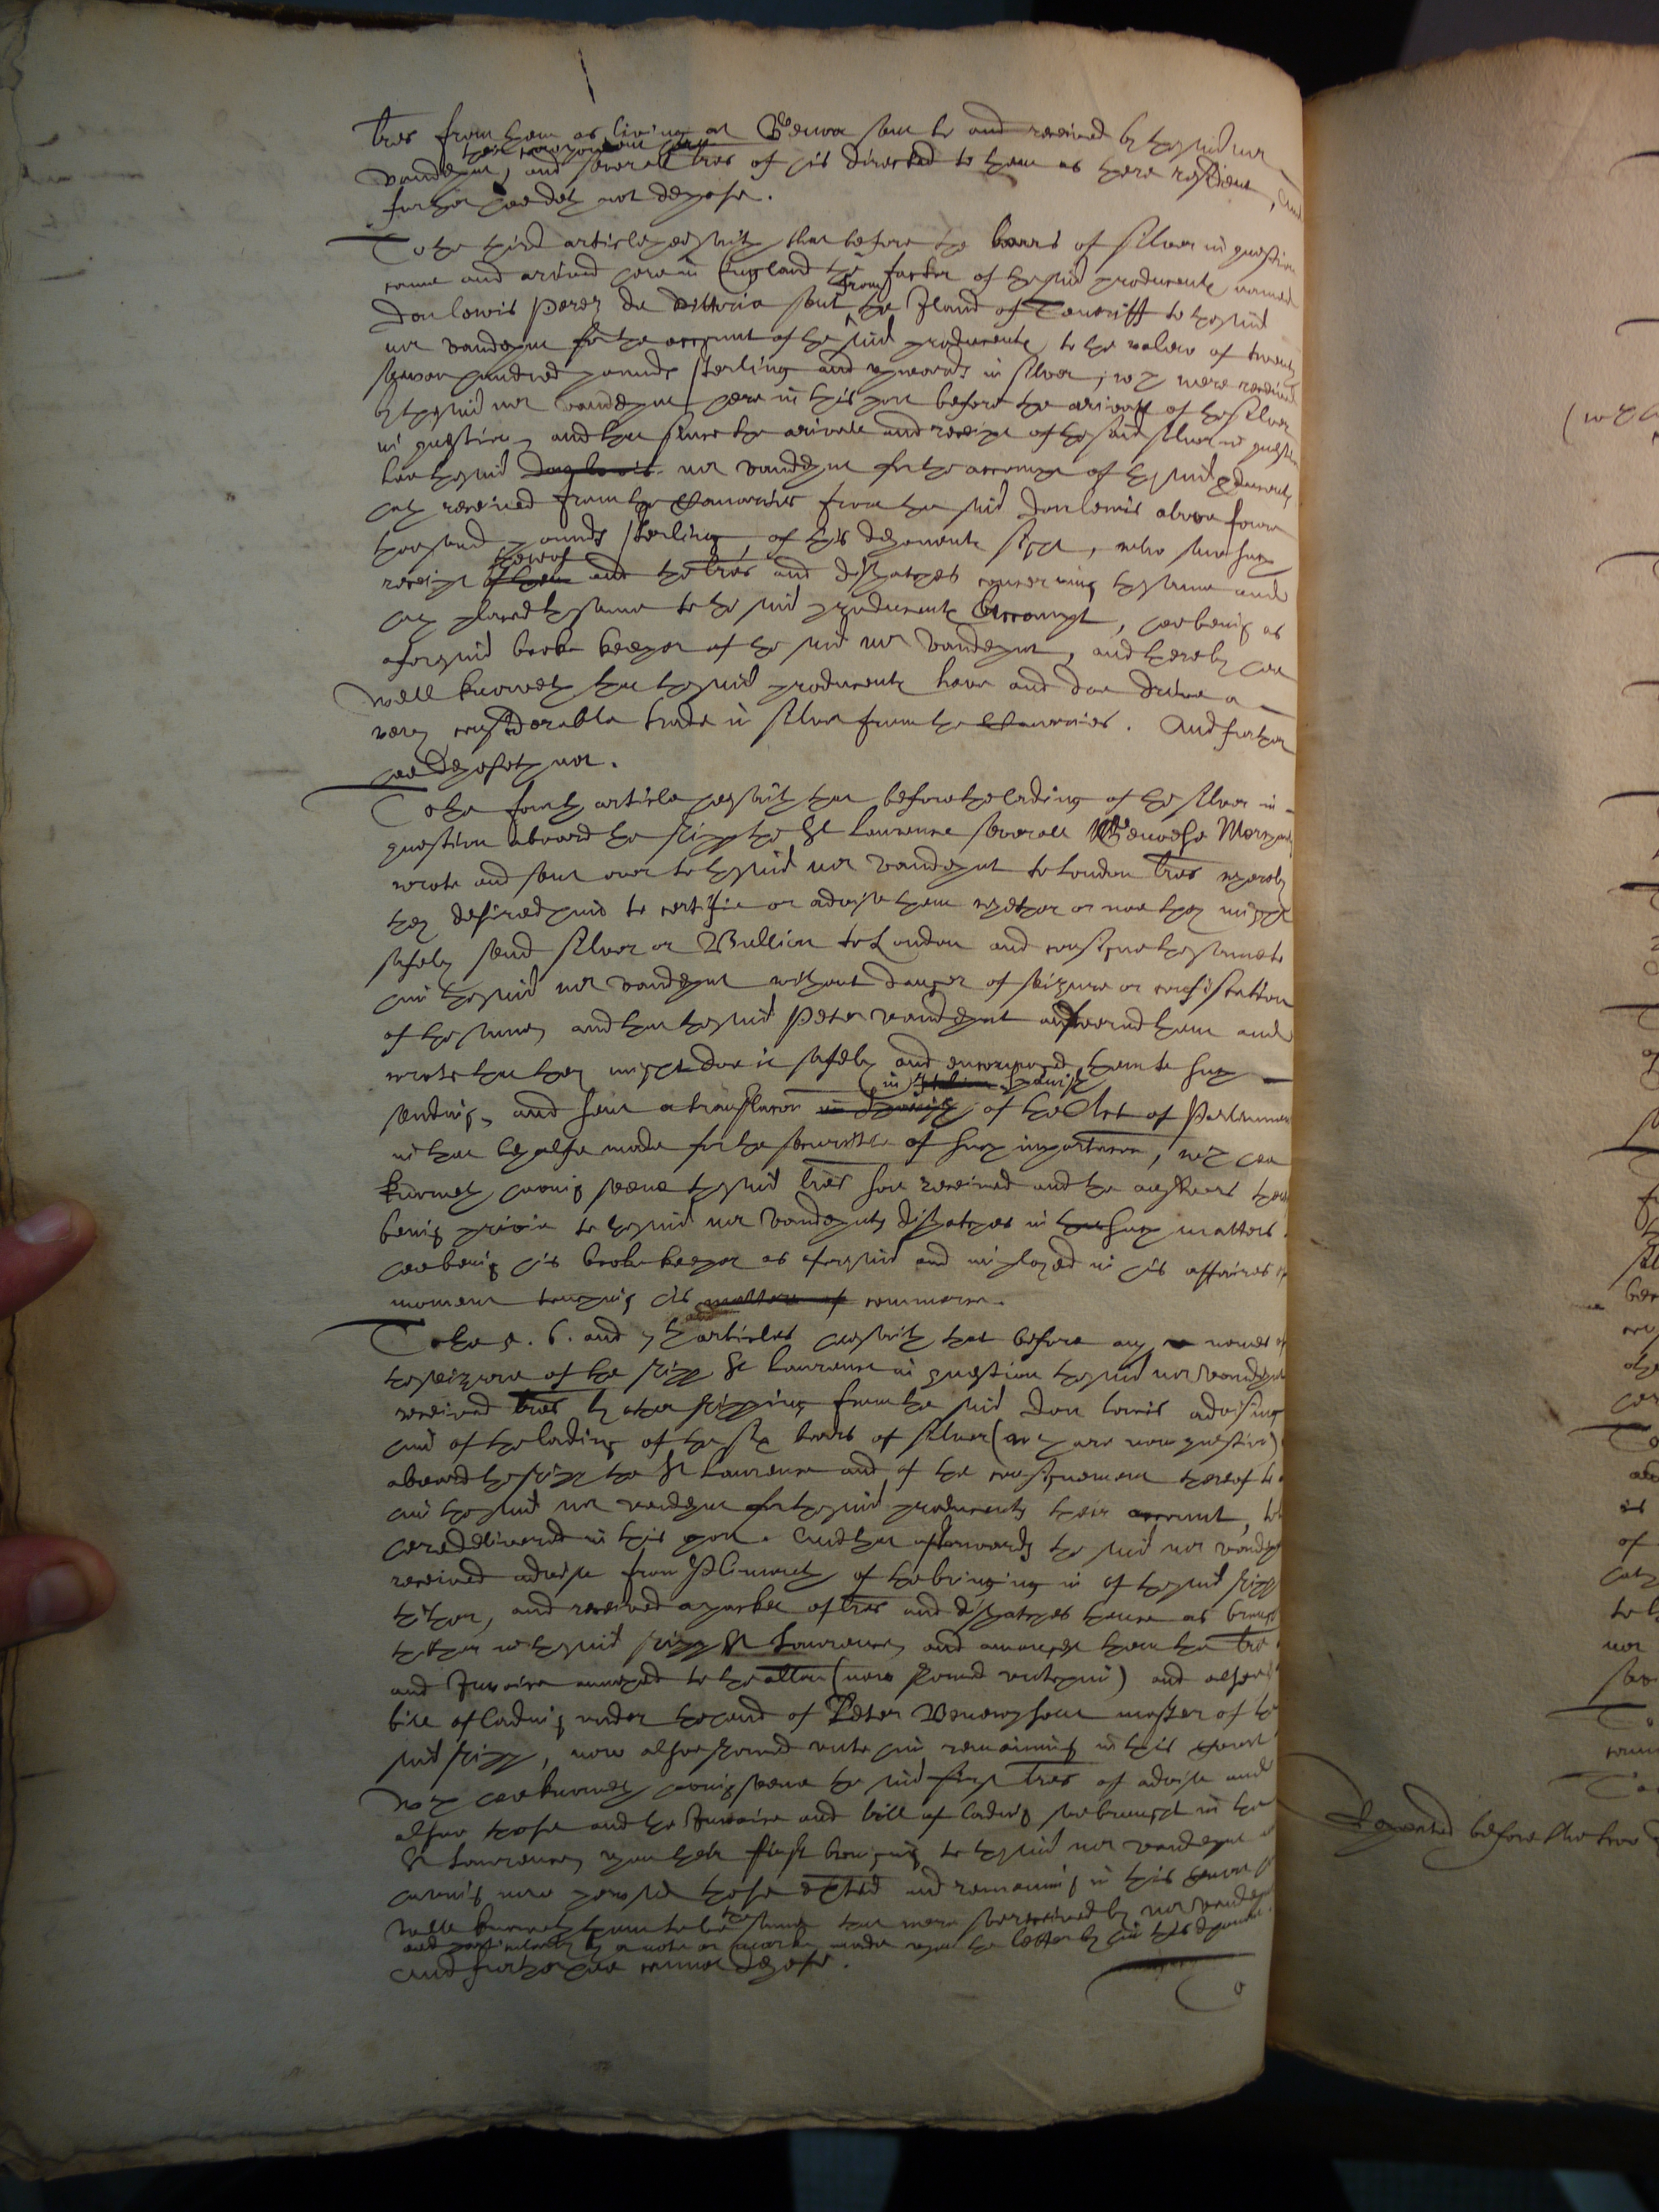 lres from them as living at Genoa sent to and received by the said mr
their correspondent here
vandeput, and severall lres of his directed to them as there resident, And
further hee doth not depose.
To the third article hee saith that before the barrs of silver in question
came and arived here in England the factor of the said producents named
from
Don Lewis Perez de Vittoria sent the Iland of Teneriff to the said
mr vandeput for the account of the said producents, to the valew of twenty
seaven hundred pounds sterling and upwards in silver, wch were received
by the said mr vandeput here in this port before the arivall of the silver
in question, and that since the arivale and receipt of the said silver in question
hee the said Don Lewis mr vandeput for the accompt of the said producents
hath received from the Canaries from the said Don Lewis above fower
thousand pounds sterling, of this deponents sight, who saw such
thereof
receipt of them and the lres and dispatches concerning the same and
hath placed the same to the said producents Accompt, hee being as
aforesaid booke keeper of the said mr Vandeput, and thereby hee
well knoweth that the said producents have and doe drive a
very considerable trade in silver from the Canaries. And further
hee deposeth not.
To the fourth article hee saith that before the lading of the silver in
question aboard the shipp the St Laurence severall Genoese Merchants
wrote and sent over to the said mr Vandeput to London lres whereby
they desired him to certifie or advise them whether or noe they might
safely send silver or Bullion to London and consigne the same to
him the said mr vandeput without danger of seizure or confiscation
of the same, and that the said Peter vandeput answered them and
wrote that they might doe it safely and encouraged them to such
in Italian Spanish
sending, and sent a translacon in Spanish of the Act of Parliament
in that behalfe made for the securitie of such importacon, wch hee
knoweth having seene the said lres soe received and the answers thereto
being privie to the said mr Vandeputs dispatches in that such matters
hee being his booke keeper as aforesaid and imployed in his affaires of
moment touching his matters of commerce.
and
To the 5. 6. and 7th articles hee saith that before any newes of
the seizure of the shipp St Laurence in question the said mr vandeput
received lres by other shipping from the said Don Lewis advising
him of the lading of the six barrs of silver (wch are now question)
aboard the shipp the St Laurence and of the consignement thereof to
him the said mr vandeput for the said producents their account, to be
here delivered in this port. And that afterwards the said mr vandeput
received advise from Plimouth of the bringing in of the said shipp
thither, and received a packet of lres and dispatches thence as brought
thither in the said shipp St Laurence, and amongst them the lre
and Invoice annexed to the allon (now showed unto him) and alsoe
bill of lading under the hand of Peter master of the
said shipp, now alsoe showed unto him remaining in this Court
wch hee knoweth having seene the said first lres of advise and
alsoe those and the Invoice and bill of lading soe brought in the
St Laurence, upon their first bringing to the said mr vandeput
having now perused those and remaining in this Court
the
well knoweth them to be same that were soe received by mr vandeput
and particularly by a note or marke made upon the letter by him this deponent.
And further hee cannot depose.
To
(wch
Repeated before doctor